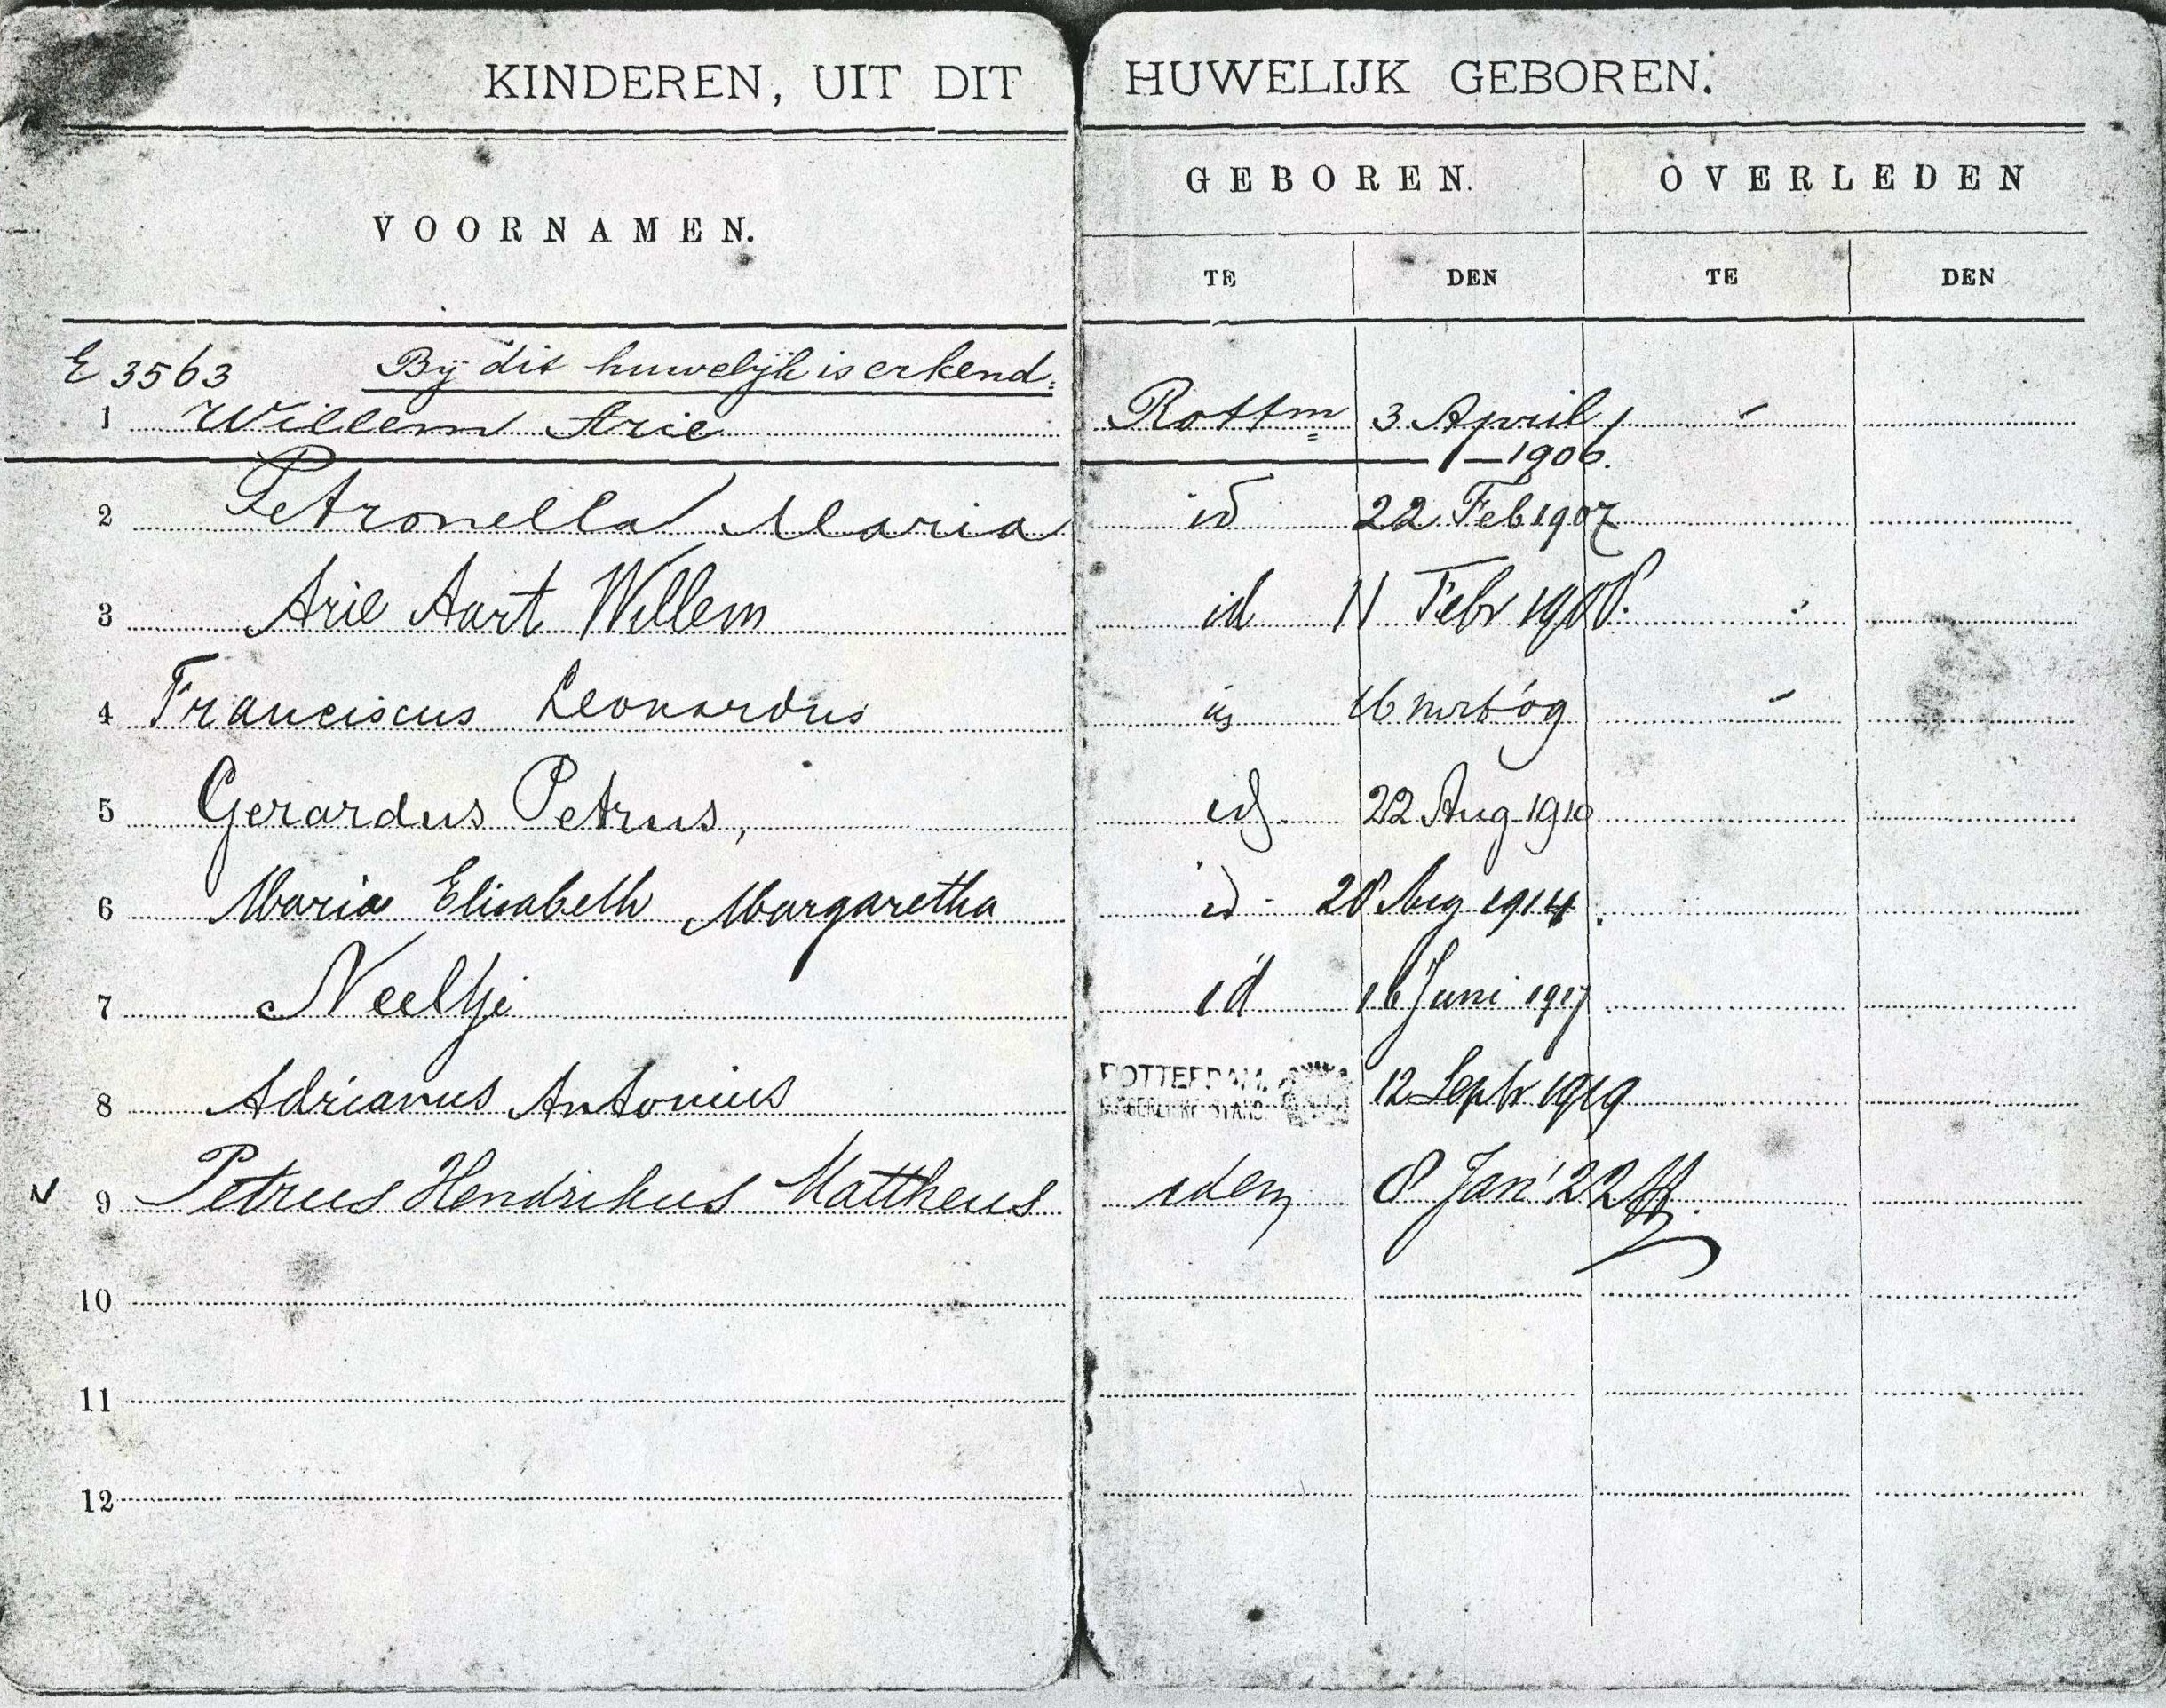 KINDEREN, UIT DIT HUWELIJK GEBOREN.
VOORNAMEN.
GEBOREN. OVERLEDEN
TE DEN TE DEN
E 3563 Bij dit huwelijk is erkend
1 Willem Arie Rottm 3 April
1906.
2 Petronella Maria id 22 Feb 1907
3 Arie Aart Willem id 11 Febr 1908.
4 Franciscus Leonardus id 16 mrt '09
5 Gerardus Petrus, id 22 Aug 1910
6 Maria Elisabeth Margaretha id 28 Aug 1914.
7 Neeltje id 16 Juni 1917
8 Adrianus Antonius ROTTERDAM. 12 Septr 1919
BURGERLIJKE STAND.
9 Petrus Hendrikus Mattheus idem 8 Jan '22
10
11
12